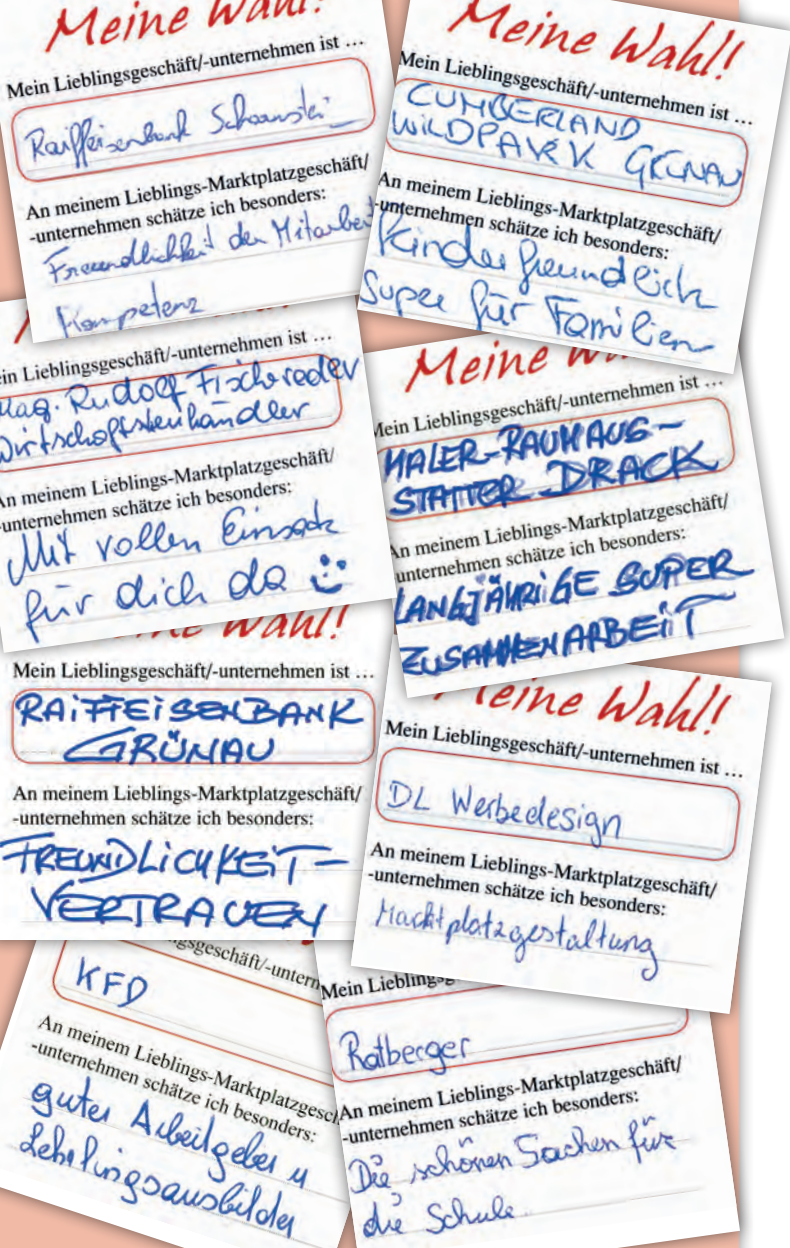 Meine Wahl!
Mein Lieblingsgeschäft/-unternehmen ist …
Raiffeisenbank
An meinem Lieblings-Marktplatzgeschäft/
-unternehmen schätze ich besonders:
Freundlichkeit der Mitarbeit
Kompetenz
Meine Wahl!
Mein Lieblingsgeschäft/-unternehmen ist …
CUMBERLAND
WILDPARK GRÜNAU
An meinem Lieblings-Marktplatzgeschäft/
-unternehmen schätze ich besonders:
Kinderfreundlich
Super für Familien
in Lieblingsgeschäft/-unternehmen ist …
Mag. Rudolf Fischereder
Wirtschaftstreuhändler
An meinem Lieblings-Marktplatzgeschäft/
-unternehmen schätze ich besonders:
Mit vollen Einsatz
für dich da
Meine
Mein Lieblingsgeschäft/-unternehmen ist …
MALER-RAUMAUS-
STATTER DRACK
An meinem Lieblings-Marktplatzgeschäft/
-unternehmen schätze ich besonders:
LANGJÄHRIGE SUPER
ZUSAMMENARBEIT
Wahl!
Mein Lieblingsgeschäft/-unternehmen ist …
RAIFFEISENBANK
GRÜNAU
An meinem Lieblings-Marktplatzgeschäft/
-unternehmen schätze ich besonders:
FREUNDLICHKEIT-
VERTRAUEN
Meine Wahl!
Mein Lieblingsgeschäft/-unternehmen ist …
DL Werbedesign
An meinem Lieblings-Marktplatzgeschäft/
-unternehmen schätze ich besonders:
Marktplatzgestaltung
ngsgeschäft/-untern
KFD
An meinem Lieblings-Marktplatzgesch
-unternehmen schätze ich besonders:
guter Arbeitgeber u
Lehrlingsausbilder
Mein Lieblingsg
Rotberger
An meinem Lieblings-Marktplatzgeschäft/
-unternehmen schätze ich besonders:
Die schönen Sachen für
die Schule.